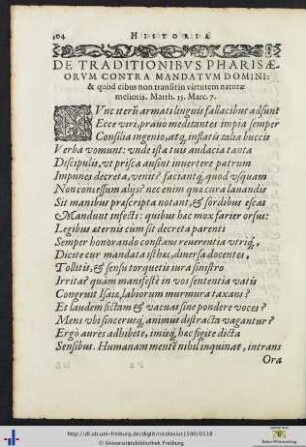 104 HISTORIA
DE TRADITIONIBVS PHARISÆ-
ORVM CONTRA MANDATVM DOMINI:
& quòd cibus non transit in virtutem naturæ
melioris. Matth. 15. Marc. 7.
NVnc iterū armati linguis fallacibus adsunt
Ecce viri, prauo meditantes impia semper
Consilia ingenio, atq, inflatis turba buccis
Verba vomunt: vnde ista tuis audacia tanta
Discipulis, vt prisca ausint inuertere patrum
Impunes decreta, venit? faciantq, quod vsquam
Non concessum alijs? nec enim qua cura lauandis
Sit manibus præscripta notant, & sordibus escas
Mandunt infecti: quibus hac mox farier orsus:
Legibus æternis cum sit decreta parenti
Semper honorando constans reuerentia vtriq,
Dicite cur mandata isthæc, diuersa docentes,
Tollitis, & sensu torquetis iura sinistro
Irrita? quàm manifestè in vos sententia vatis
Congruit Isaiæ, labiorum murmura taxans?
Et laudem fictam & vacuas sine pondere voces?
Mens vbi sincerusq, animus distracta vagantur?
Ergò aures adhibete, imisq, hæc figite dicta
Sensibus. Humanam mentē nihil inquinat, intrans
Ora
http://dl.ub.uni-freiburg.de/diglit/nicolasius1590/0118
© Universitätsbibliothek Freiburg
Baden-Württemberg